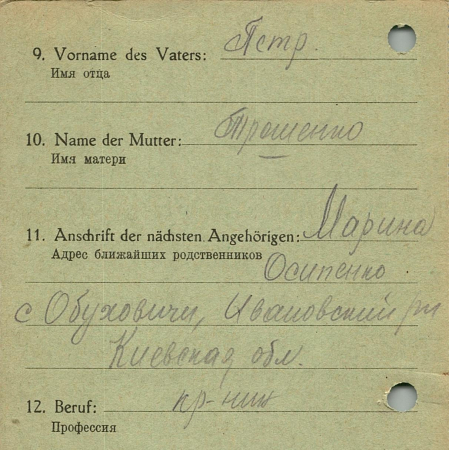 9. Vorname des Vaters: Петр.
Имя отца
10. Name der Mutter: Трошенко
Имя матери
11. Anschrift der nächsten Angehörigen: Марина
Адрес ближайших родственников Осипенко.
с Обуховичи, Ивановский рн
Киевская обл.
12. Beruf: кр-ник
Профессия